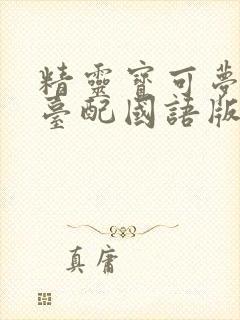 精靈寶可夢
臺配國語版
真庸